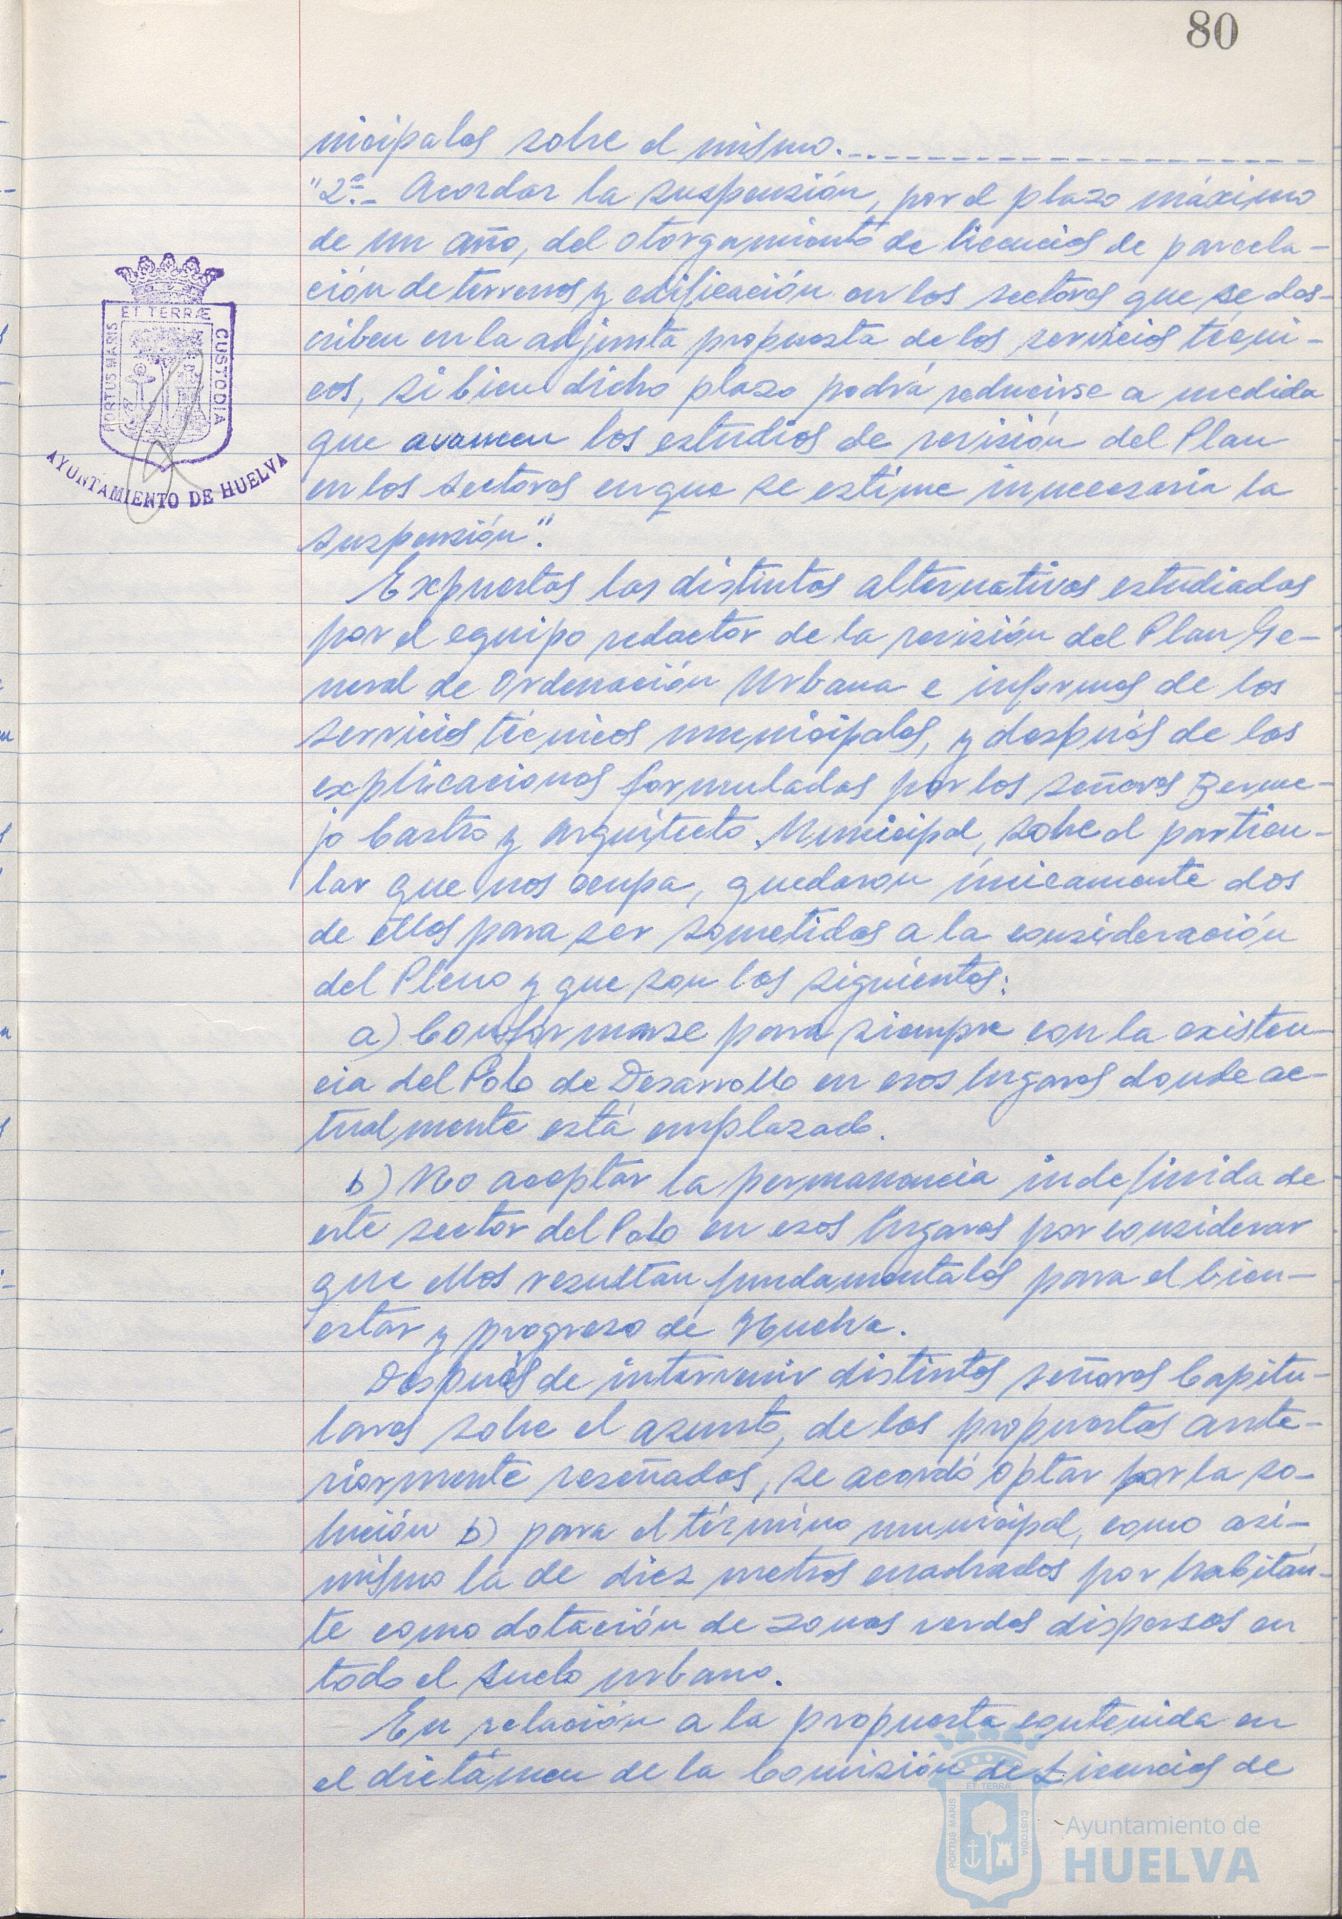 80
nicipales sobre el mismo.
"2º.- Acordar la suspensión, por el plazo máximo
de un año, del otorgamiento de licencias de parcela-
ción de terrenos y edificación en los sectores que se des-
criben en la adjunta propuesta de los servicios técni-
cos, si bien dicho plazo podrá reducirse a medida
que avancen los estudios de revisión del Plan
en los sectores en que se estime innecesaria la
suspensión".
Expuestas las distintas alternativas estudiadas
por el equipo redactor de la revisión del Plan Ge-
neral de Ordenación Urbana e informes de los
servicios técnicos municipales, y después de las
explicaciones formuladas por los señores Berme-
jo Castro y Arquitecto Municipal, sobre el particu-
lar que nos ocupa, quedaron únicamente dos
de ellas para ser sometidas a la consideración
del Pleno y que son las siguientes:
a) Conformarse para siempre con la existen-
cia del Polo de Desarrollo en esos lugares donde ac-
tualmente está emplazado.
b) No aceptar la permanencia indefinida de
este sector del Polo en esos lugares por considerar
que ellos resultan fundamentales para el bien-
estar y progreso de Huelva.
Después de intervenir distintos señores Capitu-
lares sobre el asunto, de las propuestas ante-
riormente reseñadas, se acordó optar por la so-
lución b) para el término municipal, como asi-
mismo la de diez metros cuadrados por habitan-
te como dotación de zonas verdes dispersas en
todo el suelo urbano.
En relación a la propuesta contenida en
el dictámen de la Comisión de Licencias de
ET TERRÆ
PORTUS MARIS
CUSTODIA
AYUNTAMIENTO DE HUELVA
ET TERRÆ
PORTUS MARIS
CUSTODIA
Ayuntamiento de
HUELVA